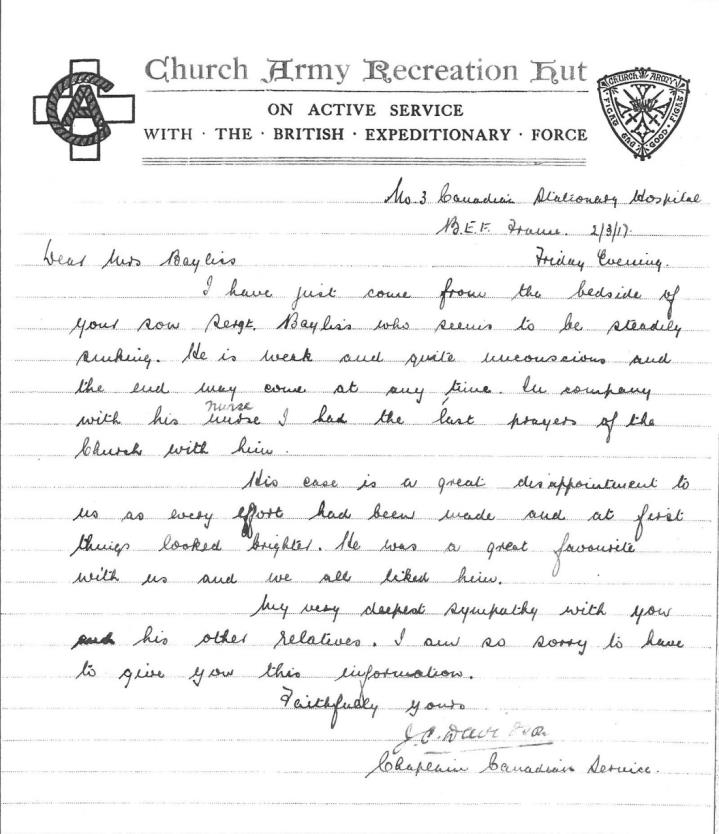 Church Army Recreation Hut
ON ACTIVE SERVICE
WITH · THE · BRITISH · EXPEDITIONARY · FORCE
CA
CHURCH ARMY
FIGHT THE GOOD FIGHT
No. 3 Canadian Stationary Hospital
B.E.F. France. 2/3/17.
Dear Mrs Bayliss
Friday Evening.
I have just come from the bedside of
your son Sergt. Bayliss who seems to be steadily
sinking. He is weak and quite unconscious and
the end may come at any time. In company
nurse
with his nurse I had the last prayers of the
Church with him.
His case is a great disappointment to
us as every effort had been made and at first
things looked brighter. He was a great favourite
with us and we all liked him.
My very deepest sympathy with you
and his other relatives. I am so sorry to have
to give you this information.
Faithfully yours
J.C. Davidson
Chaplain Canadian Service.